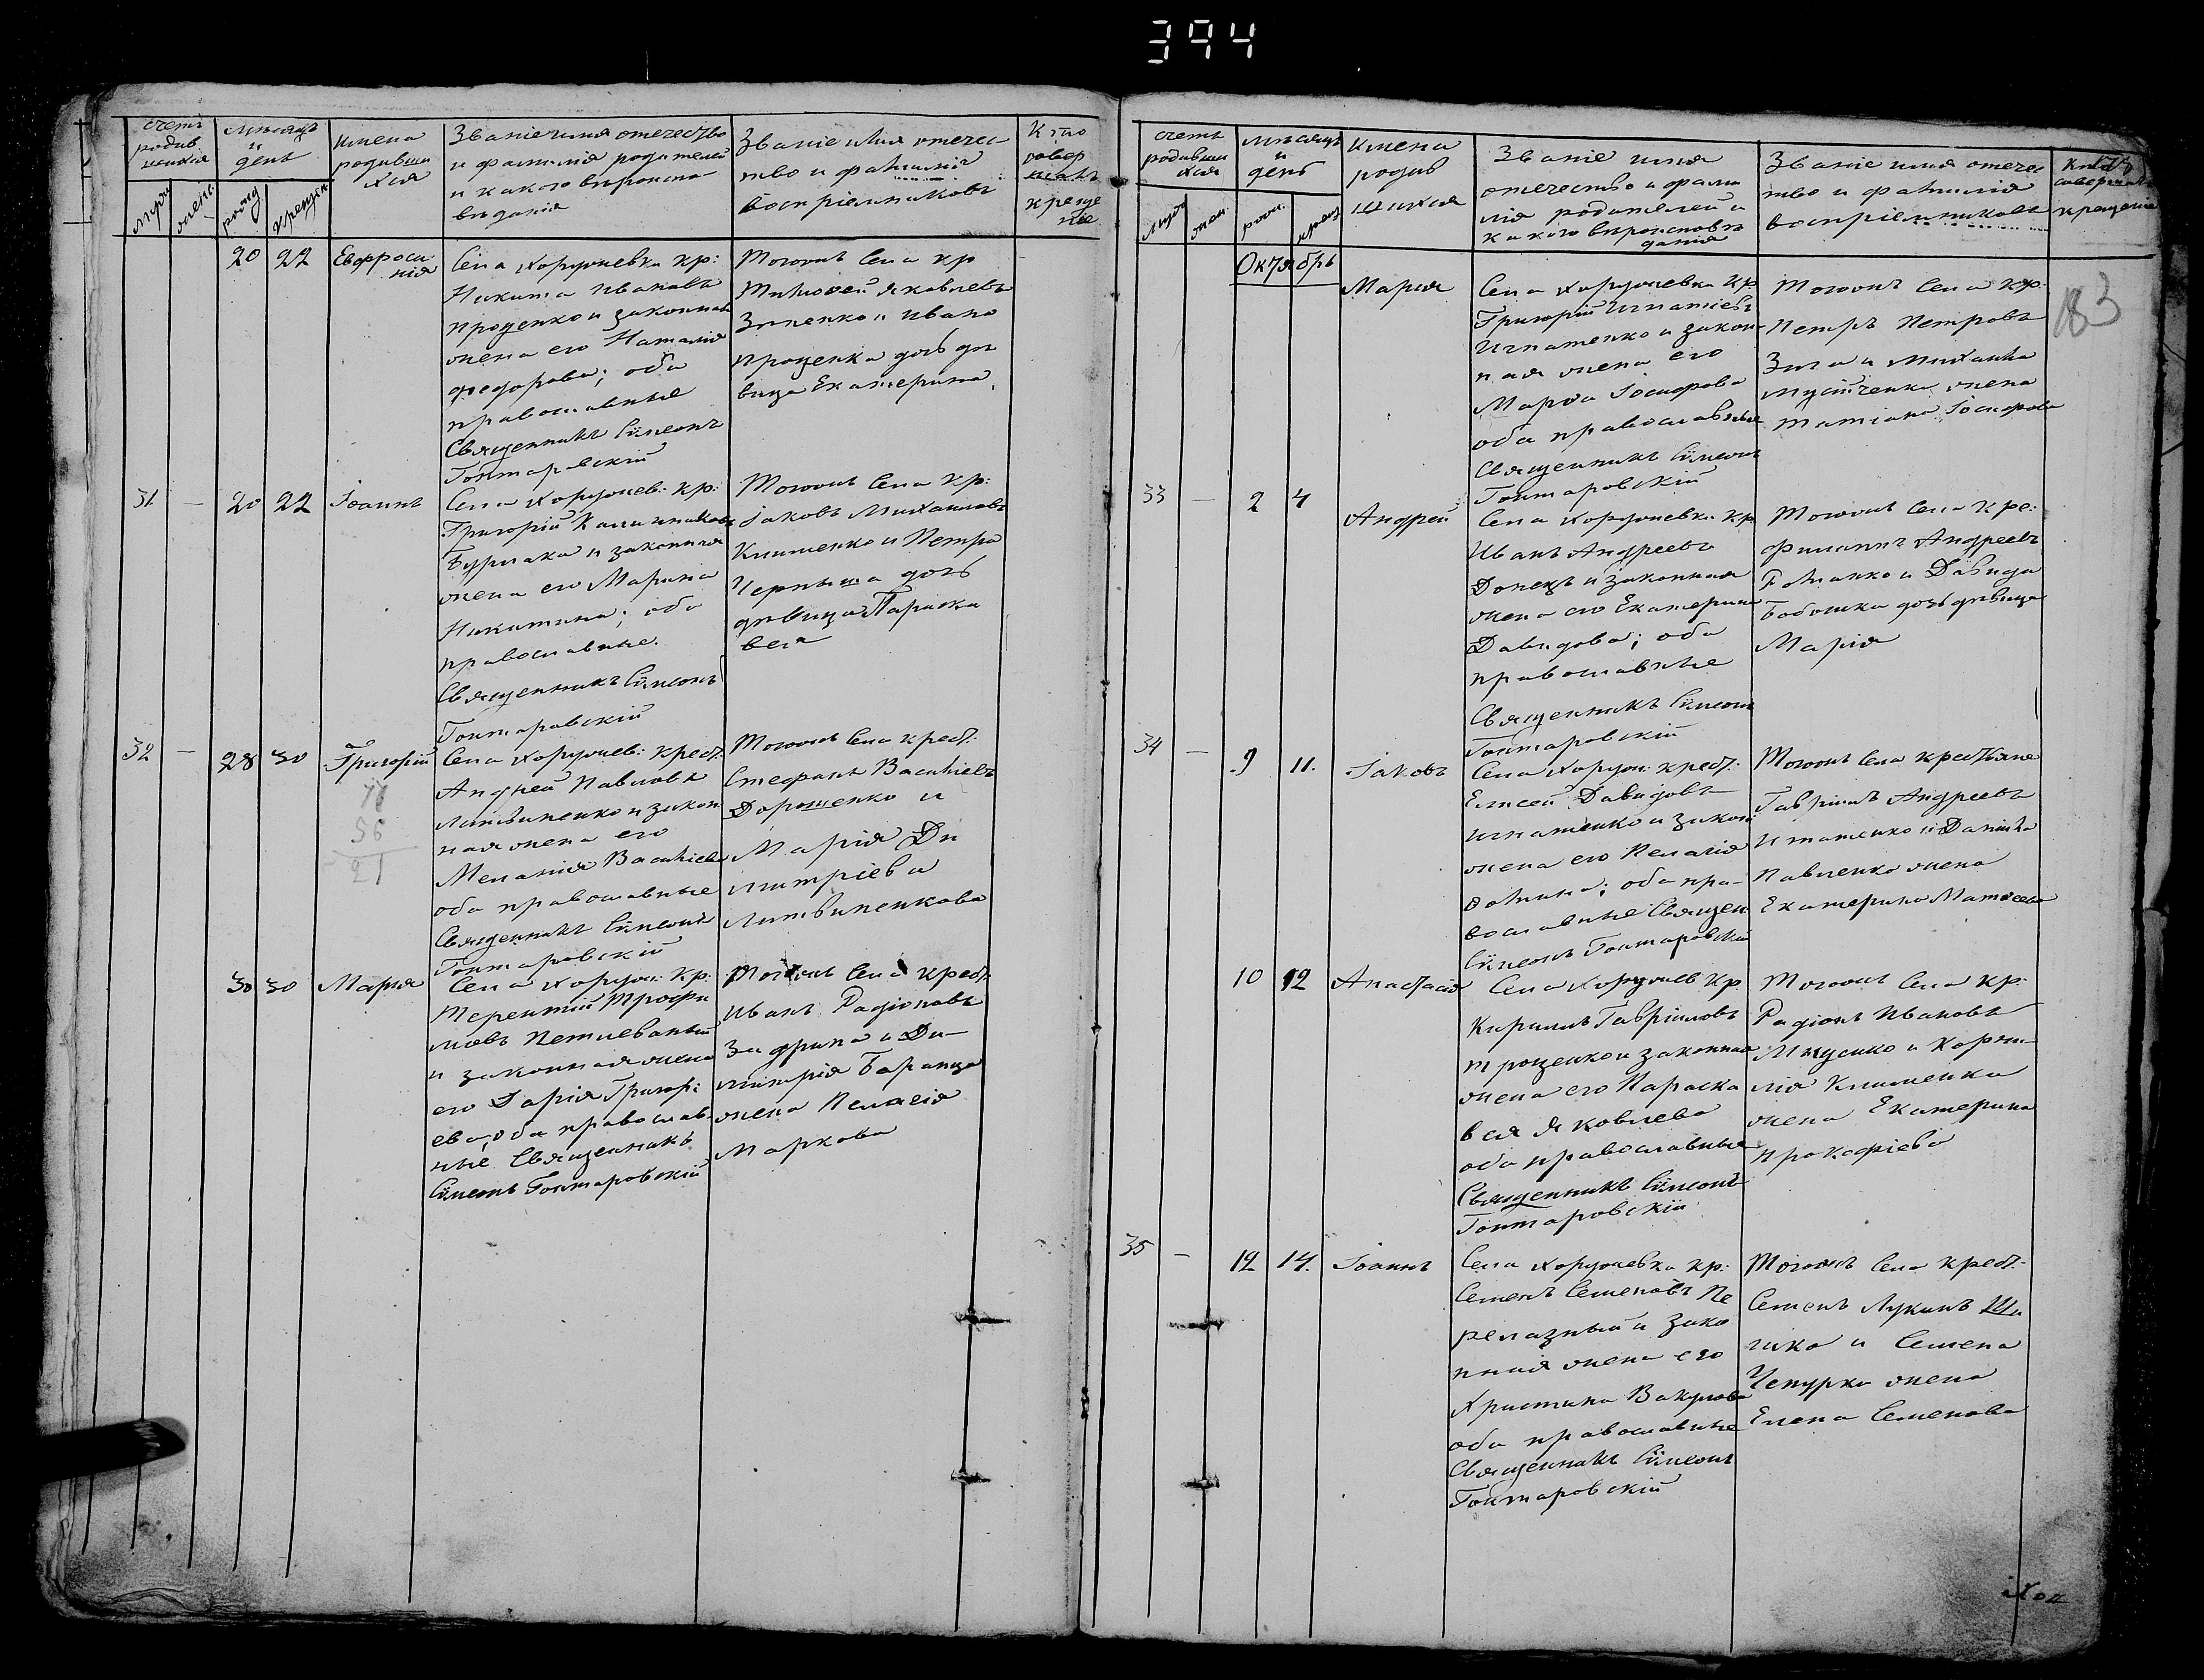 394
счетъ родив шихся
мѣсяцъ и день
имена родивши хся
Званіе имя отечество и фамилія родителей и какого вѣроиспо вѣданія
Званіе имя отечес тво и фамилія воспріемниковъ
Кто совер шалъ креще ніе
муж. женс. рожд. крещен.
20 22 Евфроси нія
Села Хоружевки кр:
Никита Ивановъ
Проценко и законная
жена его Наталія
Федорова; оба
православные
Священникъ Сѵмеонъ
Гонтаровскій
Тогожъ Села кр
Тимофей Яковлевъ
Зиненко и Ивана
Проценка дочь дѣ
вица Екатерина
31 – 20 22 Іоаннъ
Села Хоружев: кр:
Григорій Калинниковъ
Бурлака и законная
жена его Марина
Никитина; оба
православные.
Священникъ Сѵмеонъ
Гонтаровскій
Тогожъ Села кр:
Іаковъ Михаиловъ
Клименко и Петра
Черныша дочь
дѣвица Параске
вея
32 – 28 30 Григорій
77
56
21
Села Хоружев: крест:
Андрей Павловъ
Литвиненко и закон
ная жена его
Меланія Василіева
оба православные
Священникъ Сѵмеонъ
Гонтаровскій
Тогожъ Села крест:
Стефанъ Василіевъ
Дорошенко и
Марія Ди
митріева
Литвиненкова
30 30 Марія
Села Хоружи: кр:
Терентій Трофи
мовъ Петлеваный
и законная жена
его Дарія Григорі
ева, оба православ
ные Священникъ
Сѵмеонъ Гонтаровскій
Тогожъ Села крест:
Иванъ Радіоновъ
Задрипа и Ди
митрія Баранца
жена Пелагія
Маркова
счетъ родивши хся
мѣсяцъ и день
имена родив шихся
Званіе имя отечество и фами лія родителей и какого вѣроисповѣ данія
Званіе имя отечес тво и фамилія воспріемниковъ
кто совершалъ крещеніе
Октябрь
183
Марія
Села Хоружевки кр
Григорій Игнатіевъ
Игнатенко и закон
ная жена его
Марѳа Іосифова
оба православные
Священникъ Сѵмеонъ
Гонтаровскій
Тогожъ Села кр.
Петръ Петровъ
Зила и Михаила
жена
Татіана Іосифова
33 – 2 4 Андрей
Села Хоружевки кр
Иванъ Андреевъ
Донецъ и законная
жена его Екатерина
Давидова; оба
православные
Священникъ Сѵмеонъ
Гонтаровскій
Тогожъ Села кре:
Филиппъ Андреевъ
Романко и Давида
Бабошка дочь дѣвица
Марія
34 – 9 11. Іаковъ
Села Хоружи: крест:
Елисей Давидовъ
Игнатенко и закон
жена его Пелагія
Ѳомина; оба пра-
вославные Священ:
Сѵмеонъ Гонтаровскій
Тогожъ Села крестьяне
Гавріилъ Андреевъ
Игнатенко и Даніила
Павленко жена
Екатерина Матѳеева
10 12 Анастасія
Села Хоружев кр
Кириллъ Гавріиловъ
Троценко и законная
жена его Параске
вея Яковлева
оба православные
Священникъ Сѵмеонъ
Гонтаровскій
Тогожъ Села кр:
Радіонъ Ивановъ
и Корни-
лія Клименка
жена Екатерина
Прокофіева
35 – 12 14. Іоаннъ
Села Хоружевки кр:
Семенъ Семеновъ Пе
релазный и зако
нная жена его
Христина Вакулова
оба православные
Священникъ Сѵмеонъ
Гонтаровскій
Тогожъ Села крест:
Семенъ Лукинъ Ши
шка и Семена
Чепурка жена
Елена Семенова